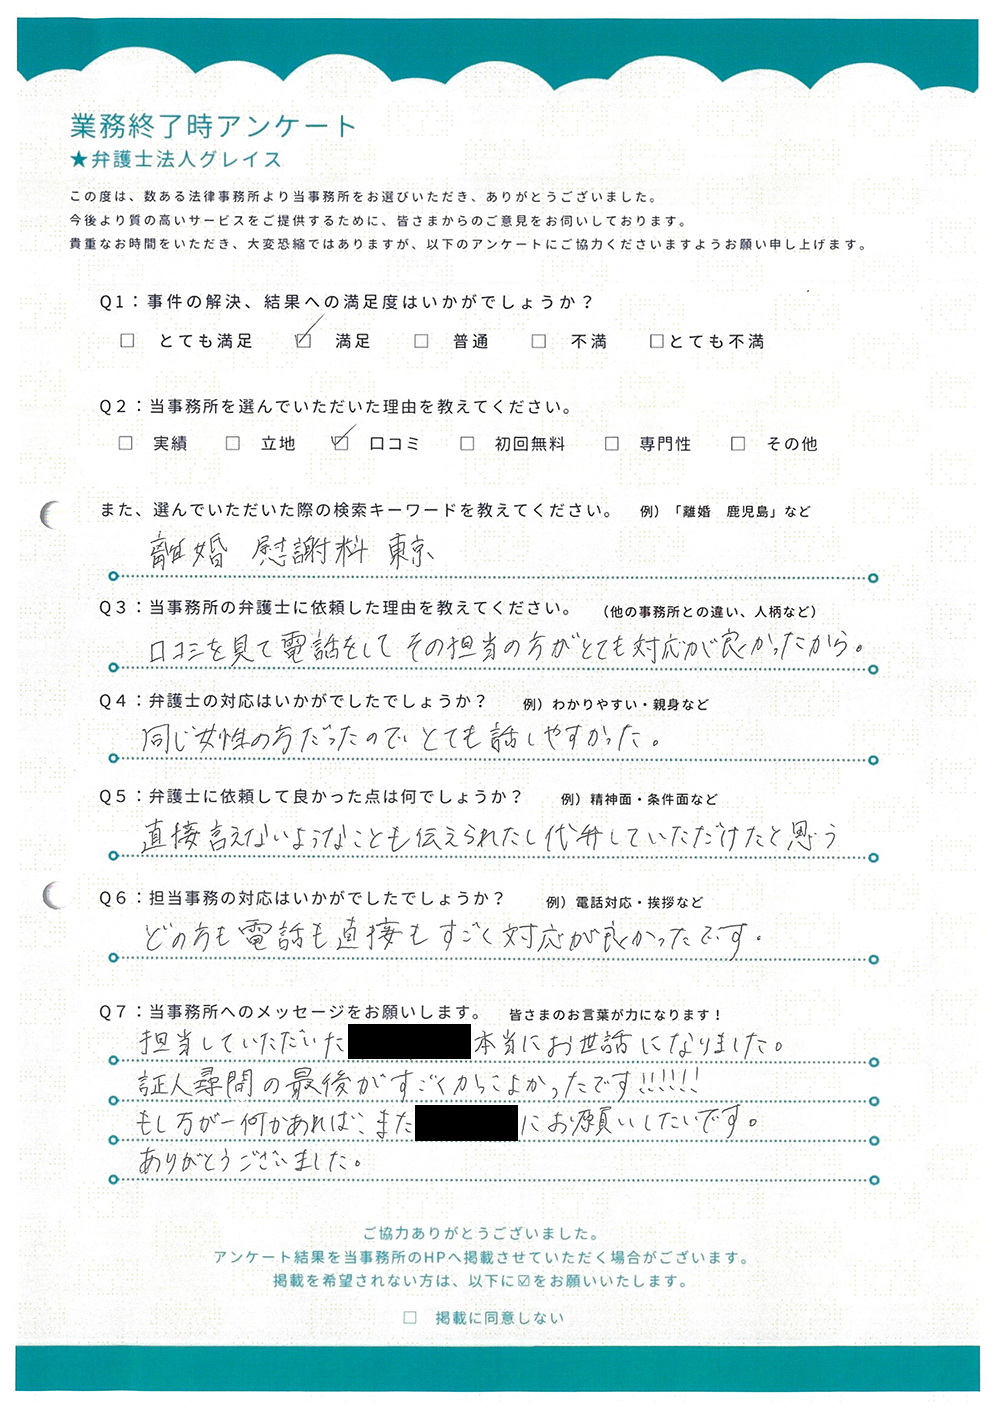 業務終了時アンケート
★弁護士法人グレイス
この度は、数ある法律事務所より当事務所をお選びいただき、ありがとうございました。
今後より質の高いサービスをご提供するために、皆さまからのご意見をお伺いしております。
貴重なお時間をいただき、大変恐縮ではありますが、以下のアンケートにご協力くださいますようお願い申し上げます。
Q1：事件の解決、結果への満足度はいかがでしょうか？
□ とても満足 ☑ 満足 □ 普通 □ 不満 □とても不満
Q2：当事務所を選んでいただいた理由を教えてください。
□ 実績 □ 立地 ☑ 口コミ □ 初回無料 □ 専門性 □ その他
また、選んでいただいた際の検索キーワードを教えてください。 例）「離婚 鹿児島」など
離婚 慰謝料 東京
Q3：当事務所の弁護士に依頼した理由を教えてください。 （他の事務所との違い、人柄など）
口コミを見て電話をしてその担当の方がとても対応が良かったから。
Q4：弁護士の対応はいかがでしたでしょうか？ 例）わかりやすい・親身など
同じ女性の方だったので、とても話しやすかった。
Q5：弁護士に依頼して良かった点は何でしょうか？ 例）精神面・条件面など
直接言えないようなことも伝えられたし代弁していただけたと思う
Q6：担当事務の対応はいかがでしたでしょうか？ 例）電話対応・挨拶など
どの方も電話も直接もすごく対応が良かったです。
Q7：当事務所へのメッセージをお願いします。 皆さまのお言葉が力になります！
担当していただいた 本当にお世話になりました。
証人尋問の最後がすごくかっこよかったです!!!!!!
もし万が一何かあれば、また にお願いしたいです。
ありがとうございました。
ご協力ありがとうございました。
アンケート結果を当事務所のHPへ掲載させていただく場合がございます。
掲載を希望されない方は、以下に☑をお願いいたします。
□ 掲載に同意しない